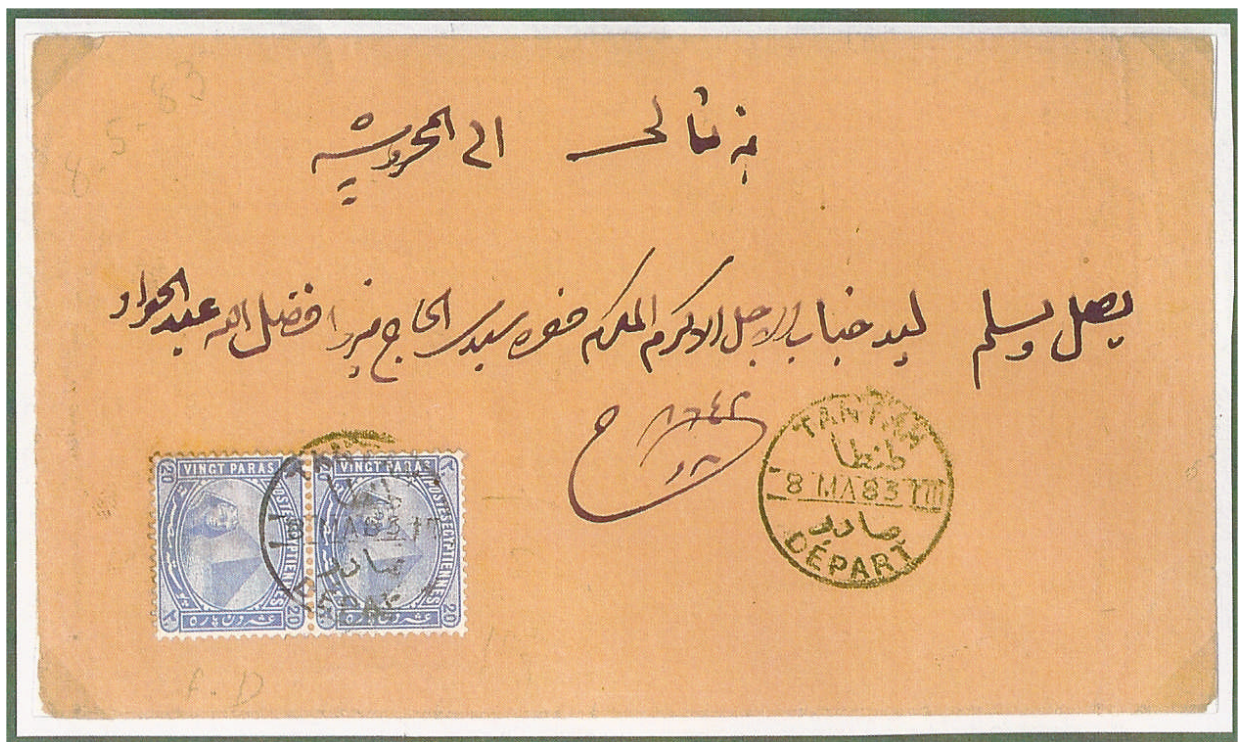 8-5-83
الى المحروسه
يصل ويسلم ليد جناب الاجل الاكرم المكرم حضرة سيدى الحاج ميرزا فضل الله عبد الجواد
٨٦٤٢
TANTAH
طنطا
8 MA 83 TIII
صادر
DÉPART
VINGT PARAS
POSTES EGYPTIENNES
20
عشرون باره
VINGT PARAS
POSTES EGYPTIENNES
20
عشرون باره
8 MA 83 T
صادر